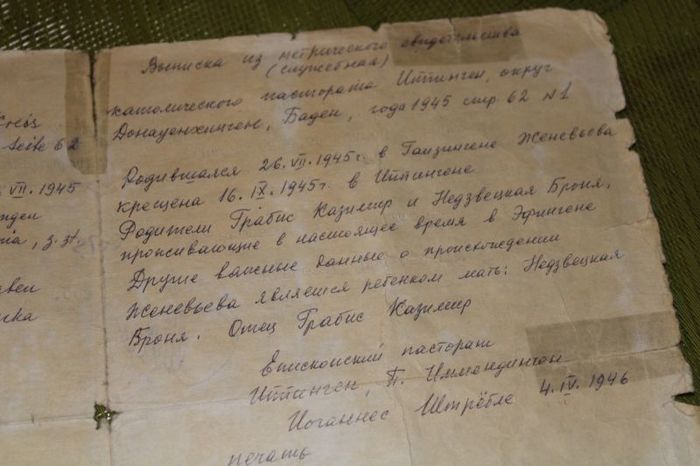 Kreis
Seite 62
VII. 1945
z. Zt.
Выписка из метрического свидетельства
(служебная)
католического пастората Иппинген, округ
Донауэшинген, Баден, года 1945 стр. 62 N 1
Родившаяся 26. VII. 1945г. в Гайзингене Женевьева
крещена 16. IX. 1945г. в Иппингене
Родители Грабис Казимир и Недзвецкая Броня,
проживающие в настоящее время в Эфингене
Другие важные данные о происхождении
Женевьева является ребенком мать: Недзвецкая
Броня. Отец Грабис Казимир
Епископский пасторат
Иппинген, П. Иммендинген
Иоганнес Штрёбле 4. IV. 1946
печать